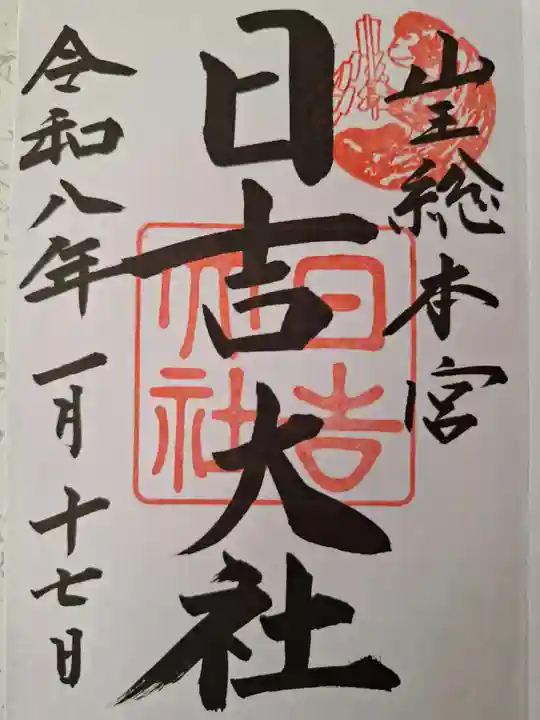 山王総本宮
日吉大社
日吉
令和八年一月十七日